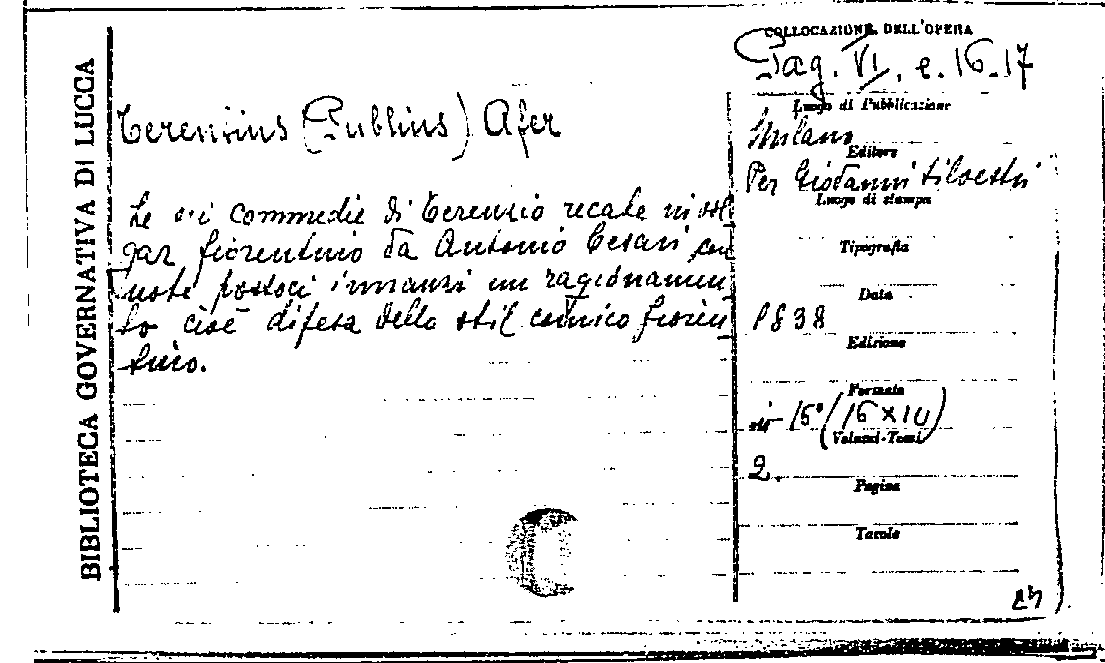 BIBLIOTECA GOVERNATIVA DI LUCCA
Terentius (Publius) Afer
Le sei Commedie di Terenzio recate in vol
gar fiorentino da Antonio Cesari con
note postoci innanzi un ragionamen
to cioè difesa dello stil comico fioren
tino.
COLLOCAZIONE DELL'OPERA
Pag. VI. e. 16-17
Luogo di Pubblicazione
Milano
Editore
Per Giovanni Silvestri
Luogo di stampa
Tipografia
Data
1838
Edizione
Formato
in-16° (16×10)
Volumi-Tomi
2.
Pagine
Tavole